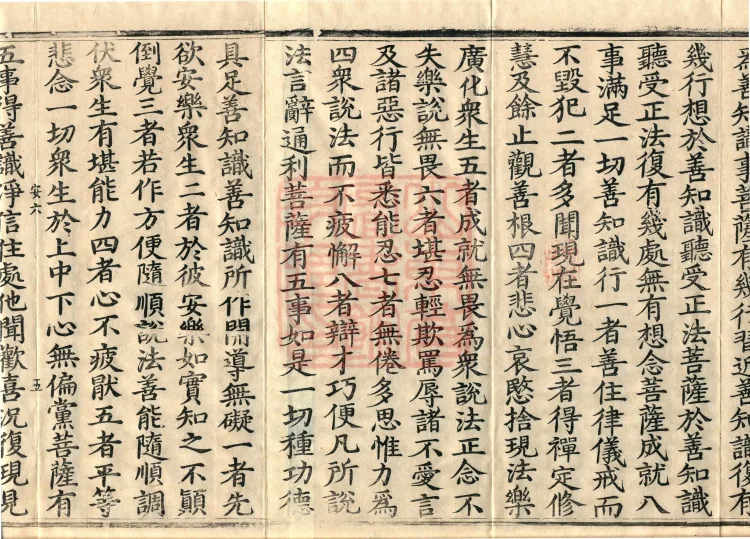 為善知識事菩薩有幾行習近善知識復有
幾行想於善知識聽受正法菩薩於善知識
聽受正法復有幾處無有想念菩薩成就八
事滿足一切善知識行一者善住律儀戒而
不毀犯二者多聞現在覺悟三者得禪定修
慧及餘止觀善根四者悲心哀愍捨現法樂
廣化衆生五者成就無畏爲衆說法正念不
失樂說無畏六者堪忍輕欺罵辱諸不愛言
及諸惡行皆悉能忍七者無倦多思惟力爲
四衆說法而不疲懈八者辯才巧便凡所說
法言辭通利菩薩有五事如是一切種功德
具足善知識善知識所作開導無礙一者先
欲安樂衆生二者於彼安樂如實知之不顚
倒覺三者若作方便隨順說法善能隨順調
伏衆生有堪能力四者心不疲厭五者平等
悲念一切衆生於上中下心無偏黨菩薩有
安六 五
五事得善識淨信住處他聞歡喜況復現見